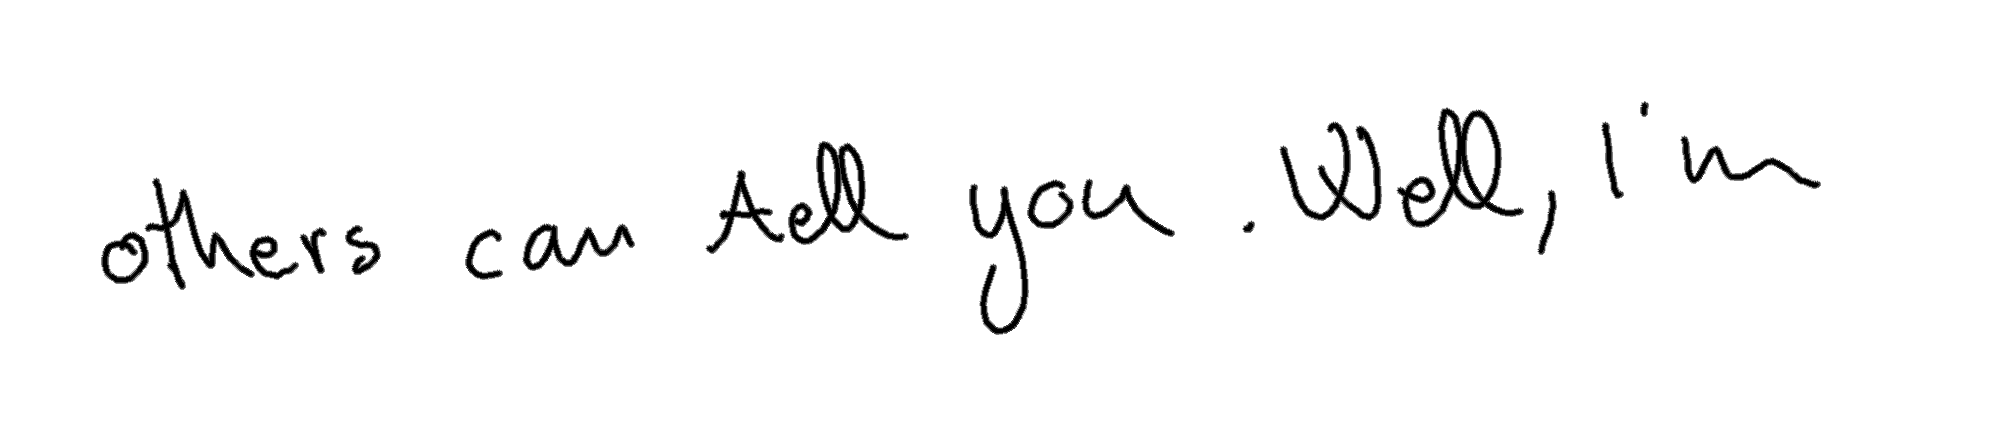 others can tell you. Well, I'm